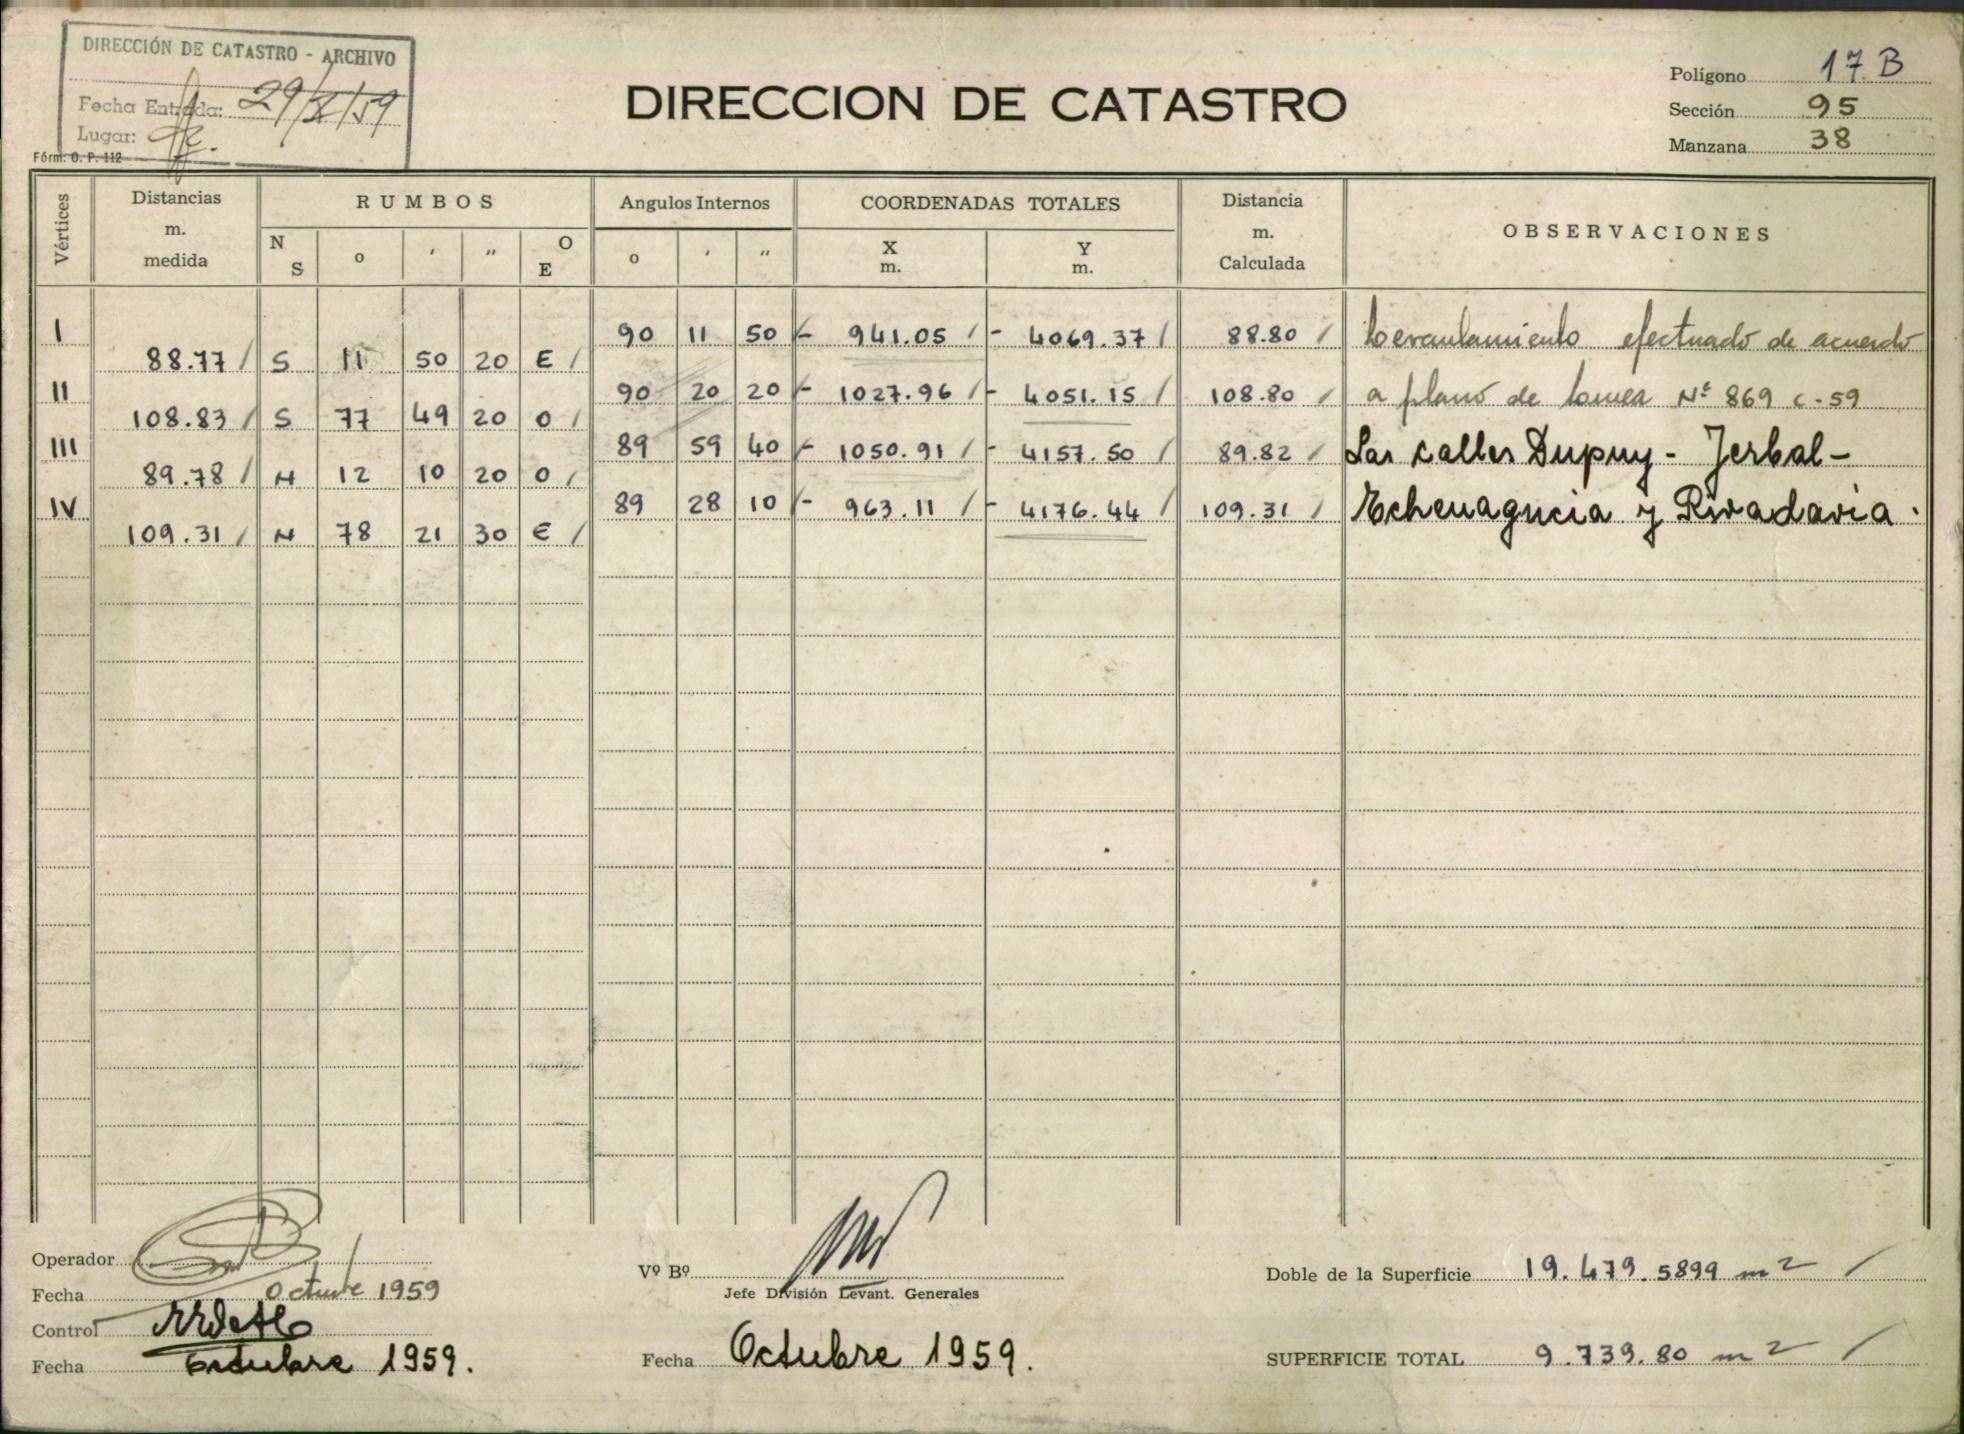 DIRECCIÓN DE CATASTRO - ARCHIVO
Fecha Entrada: 29/X/59
Lugar:
Fórm. O. P. 112
DIRECCION DE CATASTRO
Polígono 17 B
Sección 95
Manzana 38
Vértices
Distancias m. medida
RUMBOS
N S o ' " O E
Angulos Internos
o ' "
COORDENADAS TOTALES
X m. Y m.
Distancia m. Calculada
OBSERVACIONES
I 90 11 50 - 941.05 / - 4069.37 / 88.80 / efectuado de acuerdo
88.77 / S 11 50 20 E /
II 90 20 20 - 1027.96 / - 4051.15 / 108.80 / a plano de Nº 869 c-59
108.83 / S 77 49 20 O /
III 89 59 40 - 1050.91 / - 4157.50 / 89.82 / Las calles Dupuy - Jerbal -
89.78 / N 12 10 20 O /
IV 89 28 10 - 963.11 / - 4176.44 / 109.31 / Echenagucia y Rivadavia .
109.31 / N 78 21 30 E /
Operador
Fecha Octubre 1959
Control
Fecha Octubre 1959.
Vº Bº
Jefe División Levant. Generales
Fecha Octubre 1959.
Doble de la Superficie 19.479.5899 m2 /
SUPERFICIE TOTAL 9.739.80 m2 /